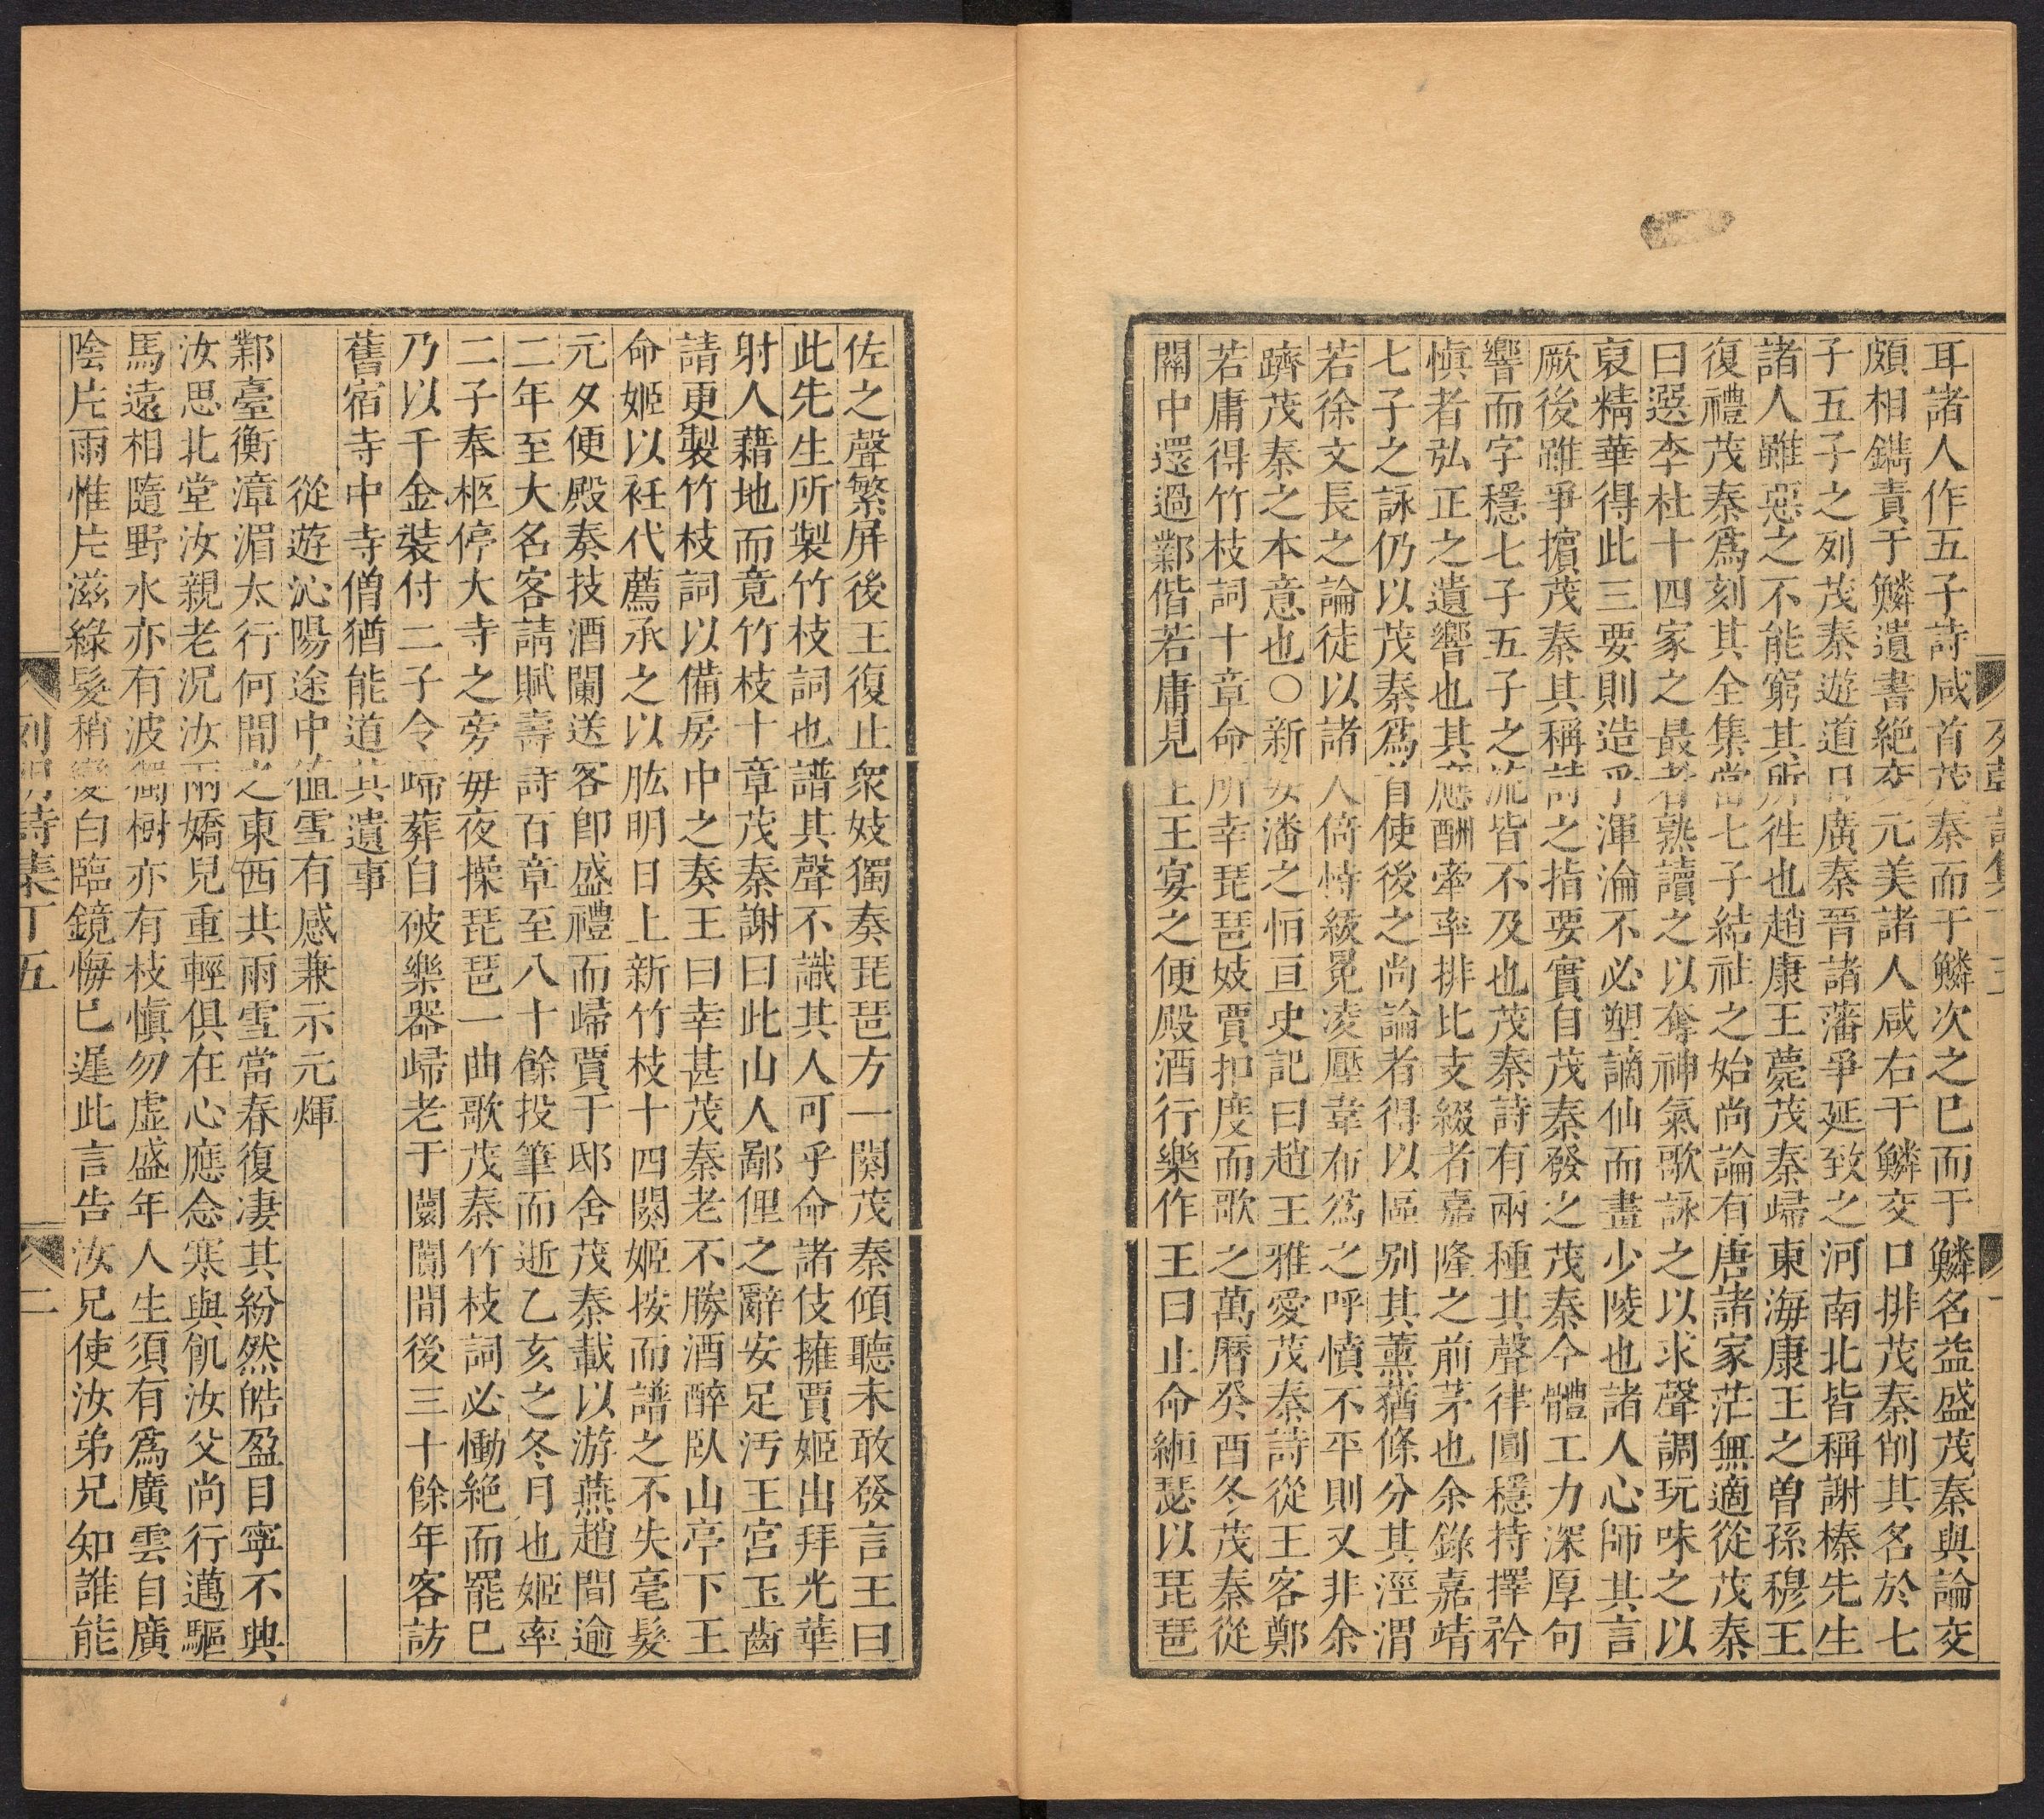 耳諸人作五子詩咸首茂秦而于鱗次之已而于鱗名益盛茂秦與論交
頗相鐫責于鱗遺書絶交元美諸人咸右于鱗交口排茂秦削其名於七
子五子之列茂秦遊道日廣秦晉諸藩爭延致之河南北皆稱謝榛先生
諸人雖惡之不能窮其所徃也趙康王薨茂秦歸東海康王之曾孫穆王
復禮茂秦爲刻其全集當七子結社之始尚論有唐諸家茫無適從茂秦
曰選李杜十四家之最者熟讀之以奪神氣歌詠之以求聲調玩味之以
裒精華得此三要則造乎渾淪不必塑謫仙而畫少陵也諸人心師其言
厥後雖爭擯茂秦其稱詩之指要實自茂秦發之茂秦今體工力深厚句
響而字穩七子五子之流皆不及也茂秦詩有兩種其聲律圓穩持擇矜
愼者弘正之遺響也其應酬牽率排比支綴者嘉隆之前茅也余錄嘉靖
七子之詠仍以茂秦爲首使後之尚論者得以區别其薰蕕條分其涇渭
若徐文長之論徒以諸人倚恃紱冕凌壓韋布爲之呼憤不平則又非余
躋茂秦之本意也○新安潘之恒亘史記曰趙王雅愛茂秦詩從王客鄭
若庸得竹枝詞十章命所幸琵琶妓賈扣度而歌之萬曆癸酉冬茂秦從
關中還過鄴偕若庸見王王宴之便殿酒行樂作王曰止命絙瑟以琵琶
佐之聲繁屏後王復止衆妓獨奏琵琶方一闋茂秦傾聽未敢發言王曰
此先生所製竹枝詞也譜其聲不識其人可乎命諸伎擁賈姬出拜光華
射人藉地而竟竹枝十章茂秦謝曰此山人鄙俚之辭安足汚王宮玉齒
請更製竹枝詞以備房中之奏王曰幸甚茂秦老不勝酒醉臥山亭下王
命姬以衽代薦承之以肱明日上新竹枝十四闋姬按而譜之不失毫髮
元夕便殿奏技酒闌送客卽盛禮而歸賈于邸舍茂秦載以游燕趙間逾
二年至大名客請賦壽詩百章至八十餘投筆而逝乙亥之冬月也姬率
二子奉柩停大寺之旁每夜操琵琶一曲歌茂秦竹枝詞必慟絶而罷已
乃以千金裝付二子令歸葬自破樂器歸老于闤闠間後三十餘年客訪
舊宿寺中寺僧猶能道其遺事
從遊沁陽途中值雪有感兼示元煇
鄴臺衡漳湄太行何間之東西共雨雪當春復凄其紛然皓盈目寧不興
汝思北堂汝親老況汝兩嬌兒重輕俱在心應念寒與飢汝父尚行邁驅
馬遠相隨野水亦有波獨樹亦有枝愼勿虛盛年人生須有爲廣雲自廣
陰片雨惟片滋綠髮稍變白臨鏡悔已遲此言告汝兄使汝弟兄知誰能
列朝詩集丁五 二